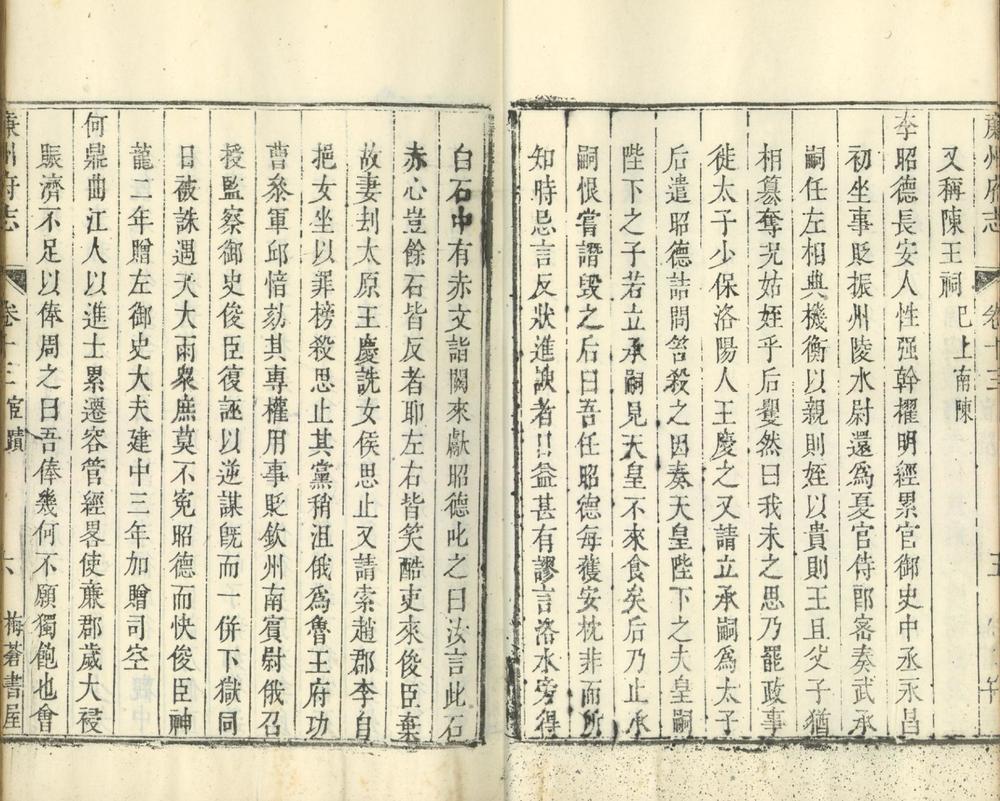 廉州府志
卷十三
五
又稱陳王祠 已上南陳
李昭德長安人性强幹擢明經累官御史中丞永昌
初坐事貶振州陵水尉還爲夏官侍郎審奏武承
嗣任左相典機衡以親則姪以貴則王且父子猶
相簒奪况姑姪乎后矍然曰我未之思乃罷政事
徙太子少保洛陽人王慶之又請立承嗣爲太子
后遣昭德詰問笞殺之因奏天皇陛下之夫皇嗣
陛下之子若立承嗣見天皇不來食矣后乃止承
嗣恨嘗譖毁之后曰吾任昭德每獲安枕非而所
知時忌言反狀進諛者日益甚有謬言洛水旁得
白石中有赤文詣闕來獻昭德叱之曰汝言此石
赤心豈餘石皆反者耶左右皆笑酷吏來俊臣棄
故妻刦太原王慶詵女侯思止又請索趙郡李自
挹女坐以罪榜殺思止其黨稍沮俄爲魯王府功
曹叅軍邱愔劾其專權用事貶欽州南賓尉俄召
授監察御史俊臣復誣以逆謀旣而一併下獄同
日被誅遇天大雨衆庶莫不寃昭德而快俊臣神
龍二年贈左御史大夫建中三年加贈司空
何鼎曲江人以進士累遷容管經畧使廉郡歲大祲
賑濟不足以俸周之曰吾俸幾何不願獨飽也會
廉州府志
卷十三 宦蹟
六
梅菴書屋